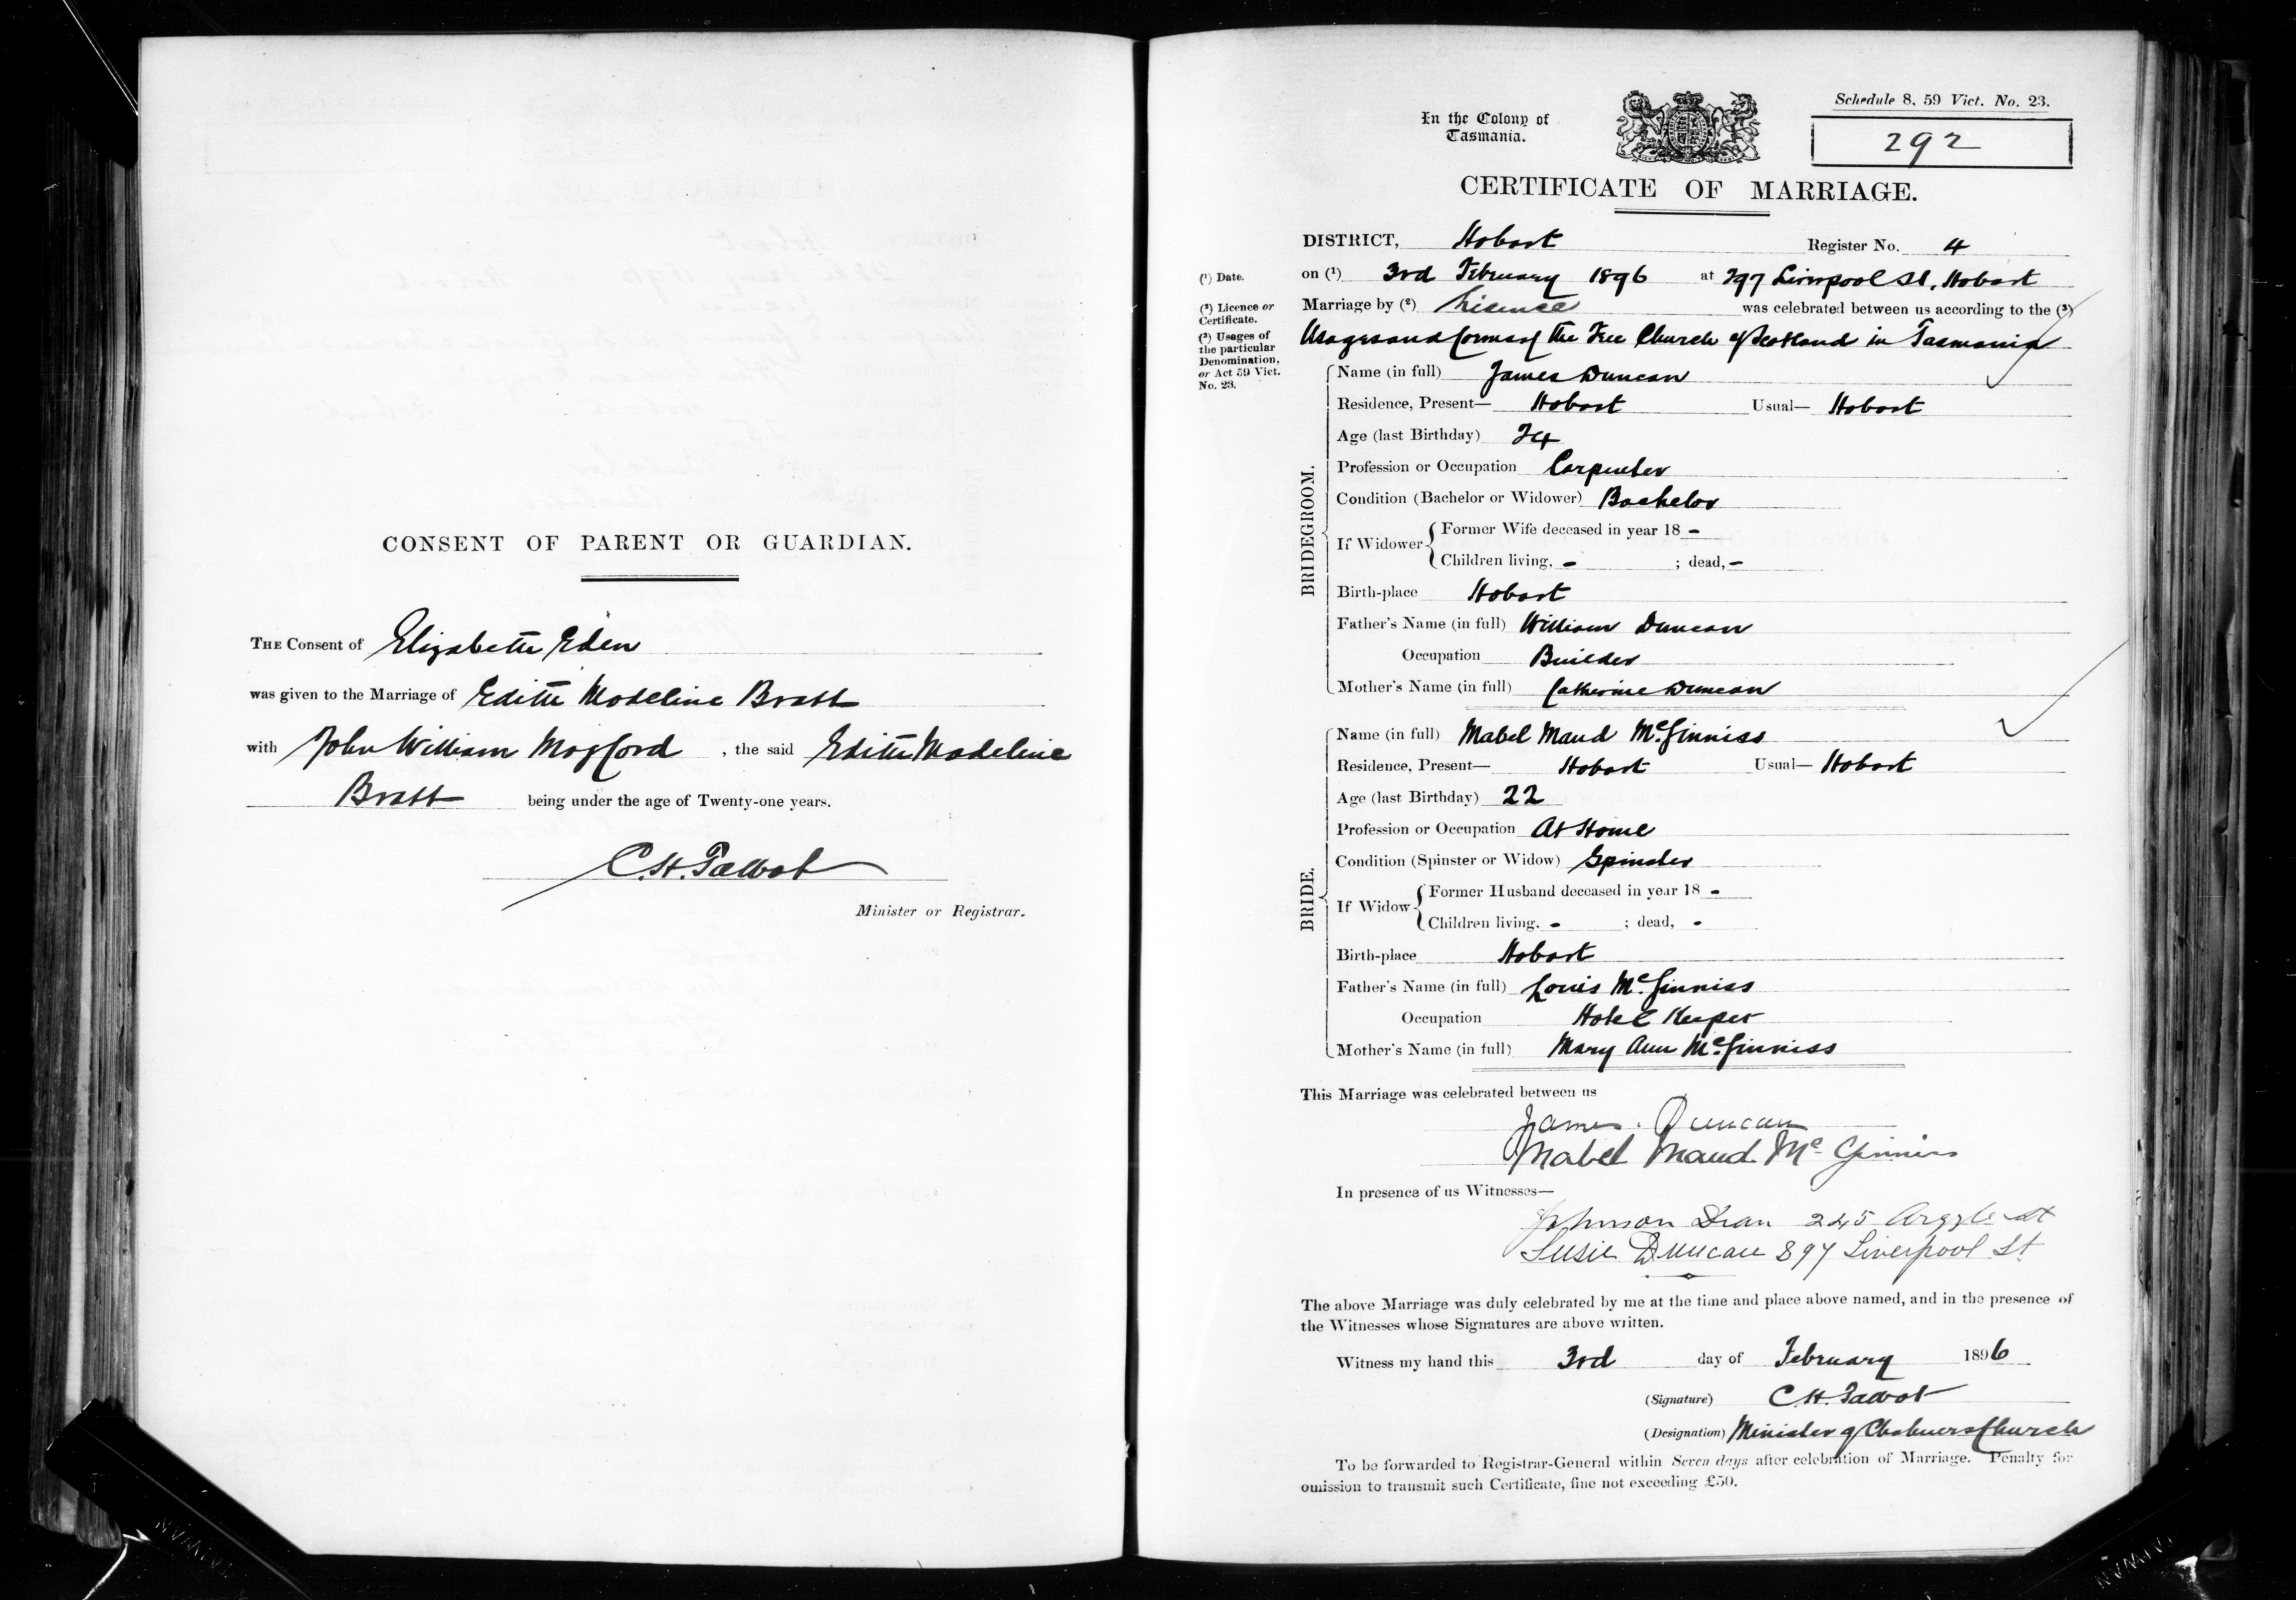 CONSENT OF PARENT OR GUARDIAN.
THE Consent of Elizabeth Eden
was given to the Marriage of Edith Madeline Bratt
with John William Mogford, the said Edith Madeline
Bratt being under the age of Twenty-one years.
C.H. Talbot
Minister or Registrar.
Schedule 8, 59 Vict. No. 23.
In the Colony of
Tasmania.
292
CERTIFICATE OF MARRIAGE.
DISTRICT, Hobart Register No. 4
(1) Date.
on (1) 3rd February 1896 at Liverpool St, Hobart
(2) Licence or
Certificate.
Marriage by (2) Lisence was celebrated between us according to the (3)
(3) Usages of
the particular
Denomination,
or Act 59 Vict.
No. 23.
Usages and forms of the Free Church of Scotland in Tasmania
BRIDEGROOM.
Name (in full) James Duncan
Residence, Present— Hobart Usual— Hobart
Age (last Birthday) 24
Profession or Occupation Carpenter
Condition (Bachelor or Widower) Bachelor
If Widower
Former Wife deceased in year 18 -
Children living, - ; dead, -
Birth-place Hobart
Father's Name (in full) William Duncan
Occupation Builder
Mother's Name (in full) Catherine Duncan
BRIDE.
Name (in full) Mabel Maud McGinniss
Residence, Present— Hobart Usual— Hobart
Age (last Birthday) 22
Profession or Occupation At Home
Condition (Spinster or Widow) Spinster
If Widow
Former Husband deceased in year 18 -
Children living, - ; dead, -
Birth-place Hobart
Father's Name (in full) Louis McGinniss
Occupation Hotel Keeper
Mother's Name (in full) Mary Ann McGinniss
This Marriage was celebrated between us
James Duncan
Mabel Maud McGinniss
In presence of us Witnesses—
Johnson Dean 245 Argyle St
Susie Duncan Liverpool St
The above Marriage was duly celebrated by me at the time and place above named, and in the presence of
the Witnesses whose Signatures are above written.
Witness my hand this 3rd day of February 1896
(Signature) C.H. Talbot
(Designation) Minister of Chalmers Church
To be forwarded to Registrar-General within Seven days after celebration of Marriage. Penalty for
omission to transmit such Certificate, fine not exceeding £50.